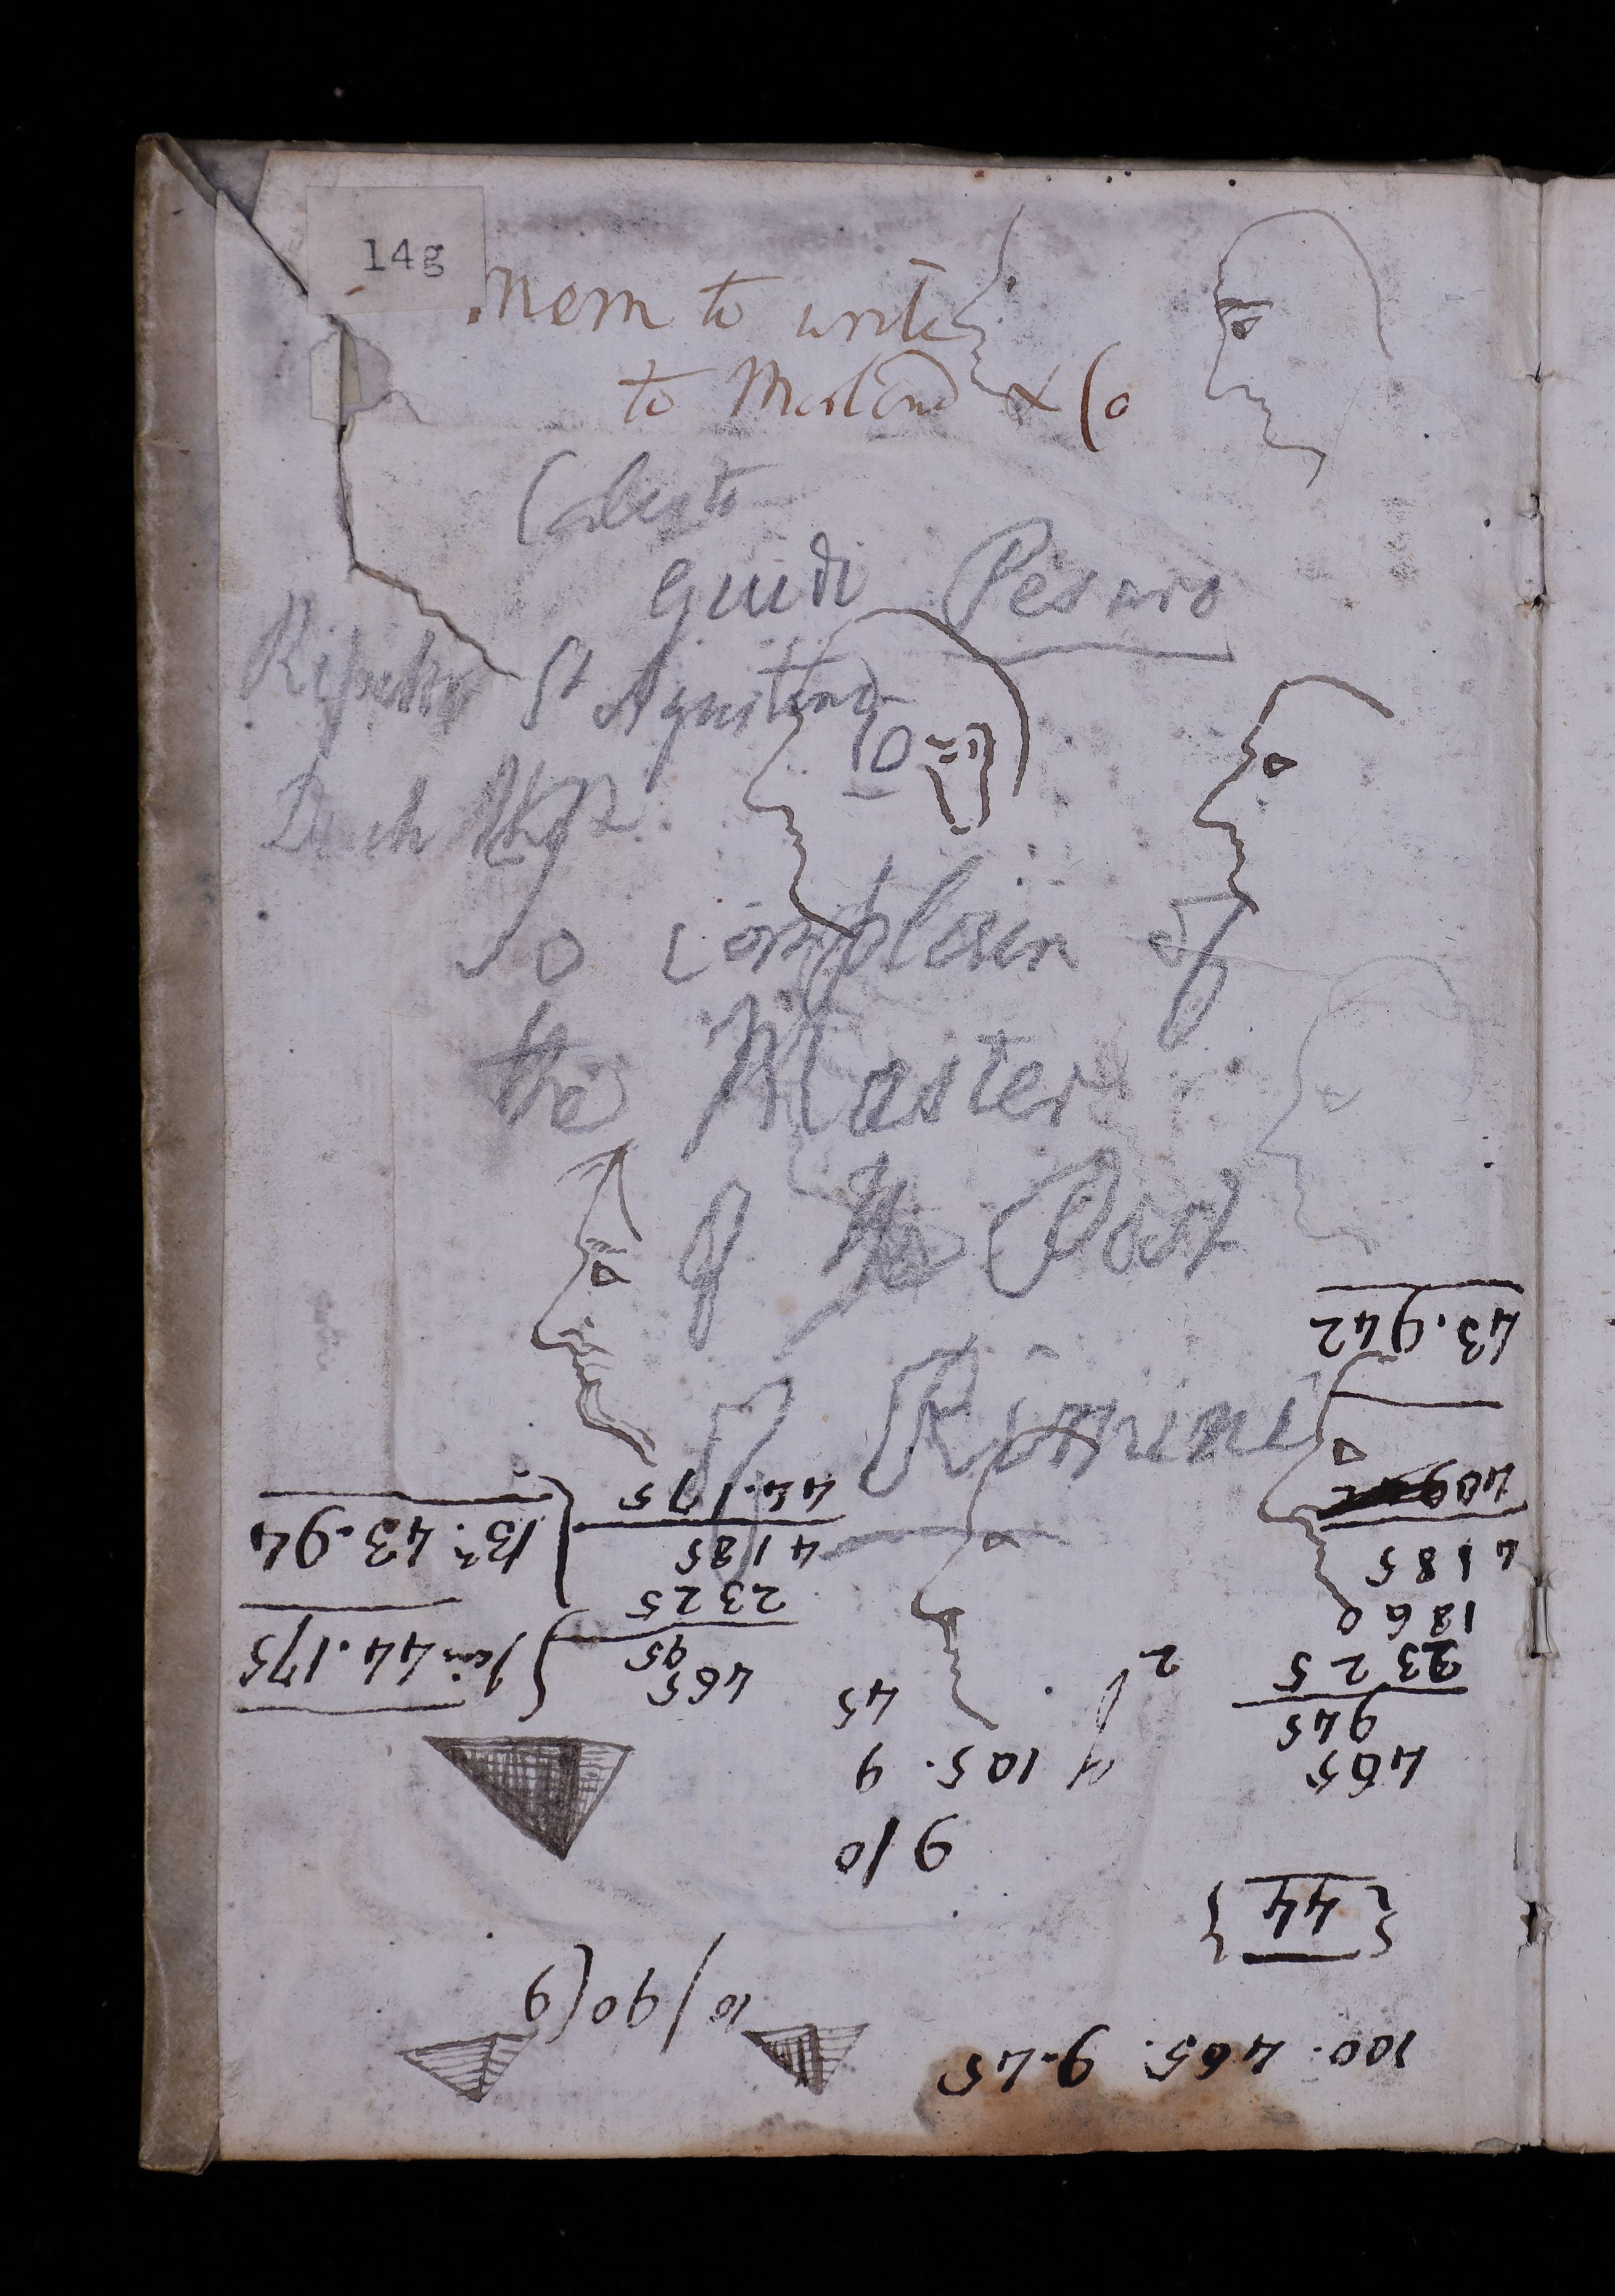 14g
Mem to write
to Morland & Co
Calisto
Guidi Pesaro
St Agostino
10
to complain of
the Master
of the Post
of Rimini
100. 465. 9.45
10/90(9
{44}
9 10
465
945
2325
1860
4185
43.942
2
105. 9
45
465
95
2325
4185
44.175
44.175
43.94